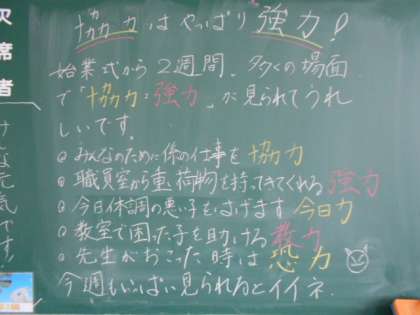 欠席者
けんな元気です!
協力はやっぱり強力!
始業式から2週間。多くの場面
で「協力=強力」が見られてうれ
しいです。
◎みんなのために係の仕事を協力
◎職員室から重い荷物を持ってきてくれる強力
◎今日体調の悪い子をはげます今日力
◎教室で困った子を助ける教力
◎先生がおこった時は恐力
今週もいっぱい見られるとイイネ。